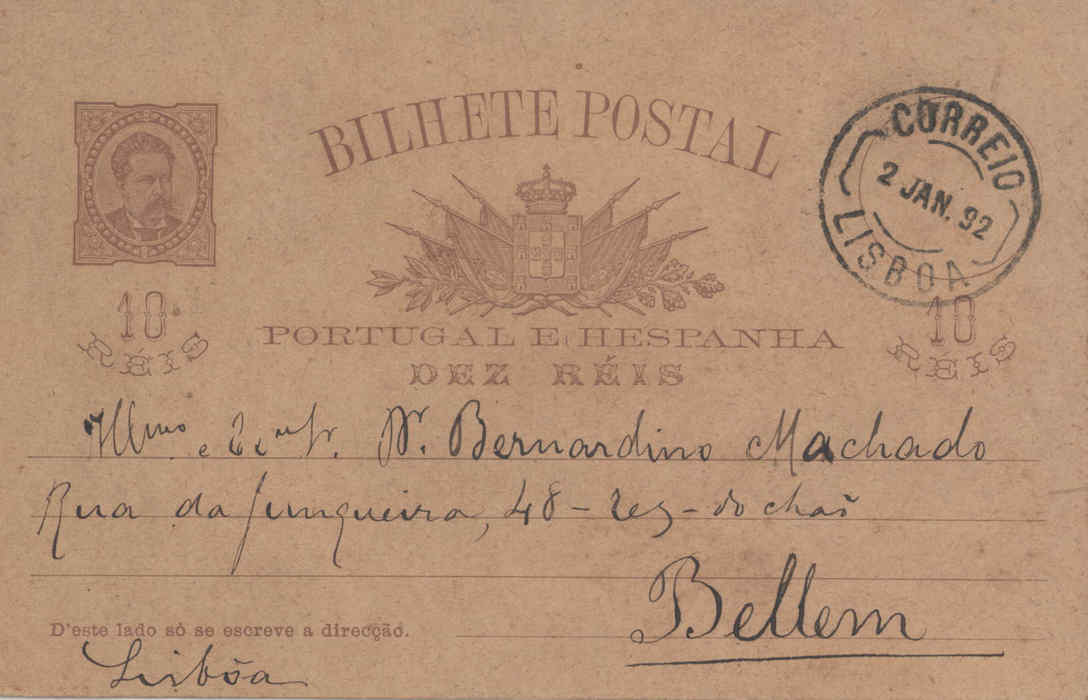 BILHETE POSTAL
CORREIO
2 JAN. 92
LISBOA
10
RÉIS
10
RÉIS
PORTUGAL E HESPANHA
DEZ RÉIS
Illmo. e Exmo Sr. Dr. Bernardino Machado
Rua da Junqueira, 48 - rez-do chão
Bellem
D'este lado só se escreve a direcção.
Lisbôa